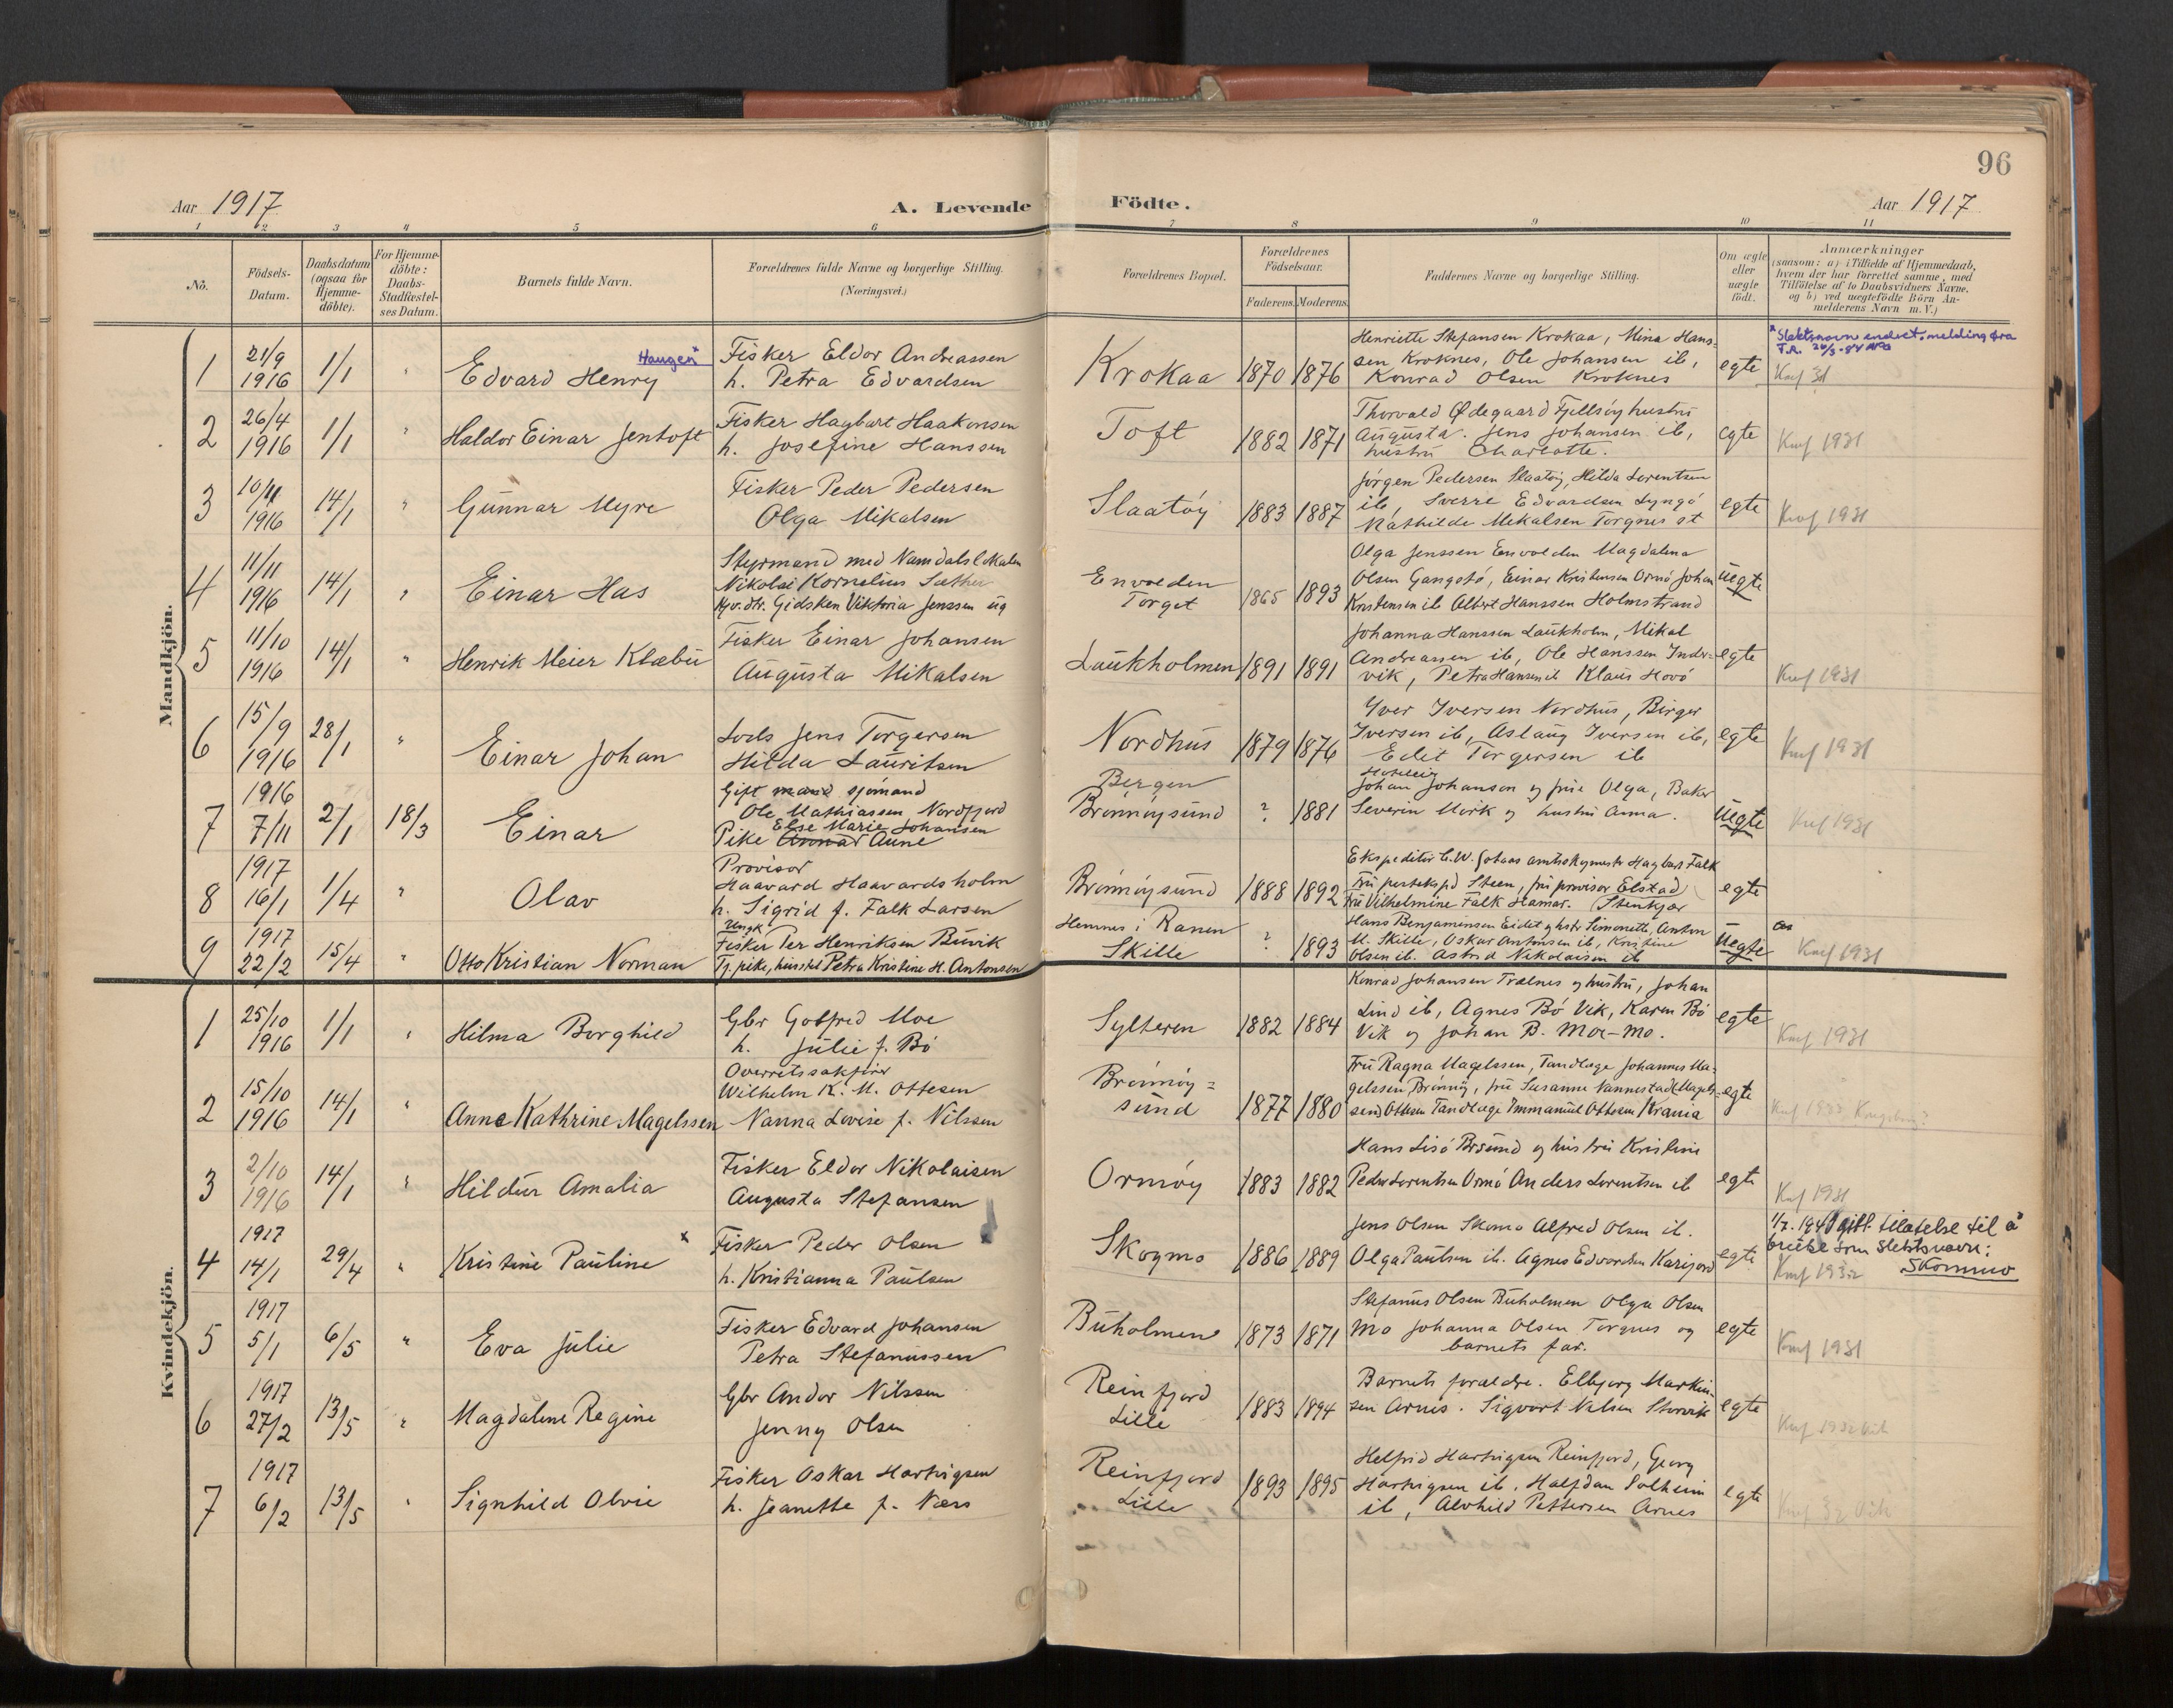 96
Aar 1917
A. Levende Födte.
Aar 1917
1 2 3 4 5 6 7 8 9 10 11
No.
Födsels-
Datum.
Daabsdatum
(ogsaa for
Hjemme-
döbte).
For Hjemme-
döbte:
Daabs-
Stadfæstel-
ses Datum.
Barnets fulde Navn.
Forældrenes fulde Navne og borgerlige Stilling.
(Næringsvei.)
Forældrenes Bopæl.
Forældrenes
Födselsaar.
Faderens. Moderens.
Faddernes Navne og borgerlige Stilling.
Om ægte
eller
uægte
födt.
Anmærkninger
(saasom: a) i Tilfælde af Hjemmedaab,
hvem der har forrettet samme, med
Tilföielse af to Daabsvidners Navne.
og b) ved uægtefödte Börn An-
melderens Navn m. V.)
Mandkjön.
1
21/9
1916
1/1
"
Haugen x
Edvard Henry
Fisker Eldor Andreassen
h. Petra Edvardsen
Krokaa
1870 1876
Henriette Stefansen Krokaa, Mina Hans-
sen Kroknes, Ole Johansen ib,
Konrad Olsen Kroknes
egte
x Slektsnavn endret, melding fra
F.R.
Knf 31
2
26/4
1916
1/1
"
Haldor Einar Jentoft
Fisker Hagbart Haakonsen
h. Josefine Hanssen
Toft
1882 1871
Thorvald Ødegaard Fjellsøy hustru
Augusta. Jens Johansen ib,
hustru Charlotte.
egte
Knf 1931
3
10/11
1916
14/1
"
Gunnar Myre
Fisker Peder Pedersen
Olga Mikalsen
Slaatøy
1883 1887
Jörgen Pedersen Slaatöy, Hilda Lorentsen
ib, Sverre Edvardsen Lyngö
Mathilde Mekalsen Torgnes st
egte
Knf 1931
4
11/11
1916
14/1
"
Einar Has
Styrmand med Namdalslokalen
Nikolai Kornelius Sæther
Gidsken Viktoria Jenssen ug
Envolden
Torget
1865 1893
Olga Jenssen Envolden Magdalena
Olsen Gangstö, Einar Kristensen Ormö Johan
Kristensen ib Albert Hanssen Holmstrand
uegte
5
11/10
1916
14/1
"
Henrik Meier Klæbu
Fisker Einar Johansen
Augusta Mikalsen
Laukholmen
1891 1891
Johanna Hanssen Laukholm, Mikal
Andreassen ib, Ole Hanssen Indr-
vik, Petra Hansen ib Klaus Hovö
egte
Knf 1931
6
15/9
1916
28/1
"
Einar Johan
Lods Jens Torgersen
Hilda Lauritsen
Nordhus
1879 1876
Yver Iversen Nordhus, Birger
Iversen ib, Aslaug Iversen ib,
Edit Torgersen ib
egte
Knf 1931
7
1916
7/11
2/1
18/3
Einar
Gift mand sjömand
Ole Mathiassen Nordfjord
Else Marie Johansen
Pike Aune
Bergen
Brönnöysund
? 1881
Johan Johanson og frue Olga, Baker
Severin Mörk og hustru Anna.
Uegte
Knf 1931
8
1917
16/1
1/4
"
Olav
Provisor
Haavard Haavardsholm
h. Sigrid f. Falk Larsen
Brönnöysund
1888 1892
Ekspeditör C.W. Johans Hagbart Falk
Fru Steen, fru provisor Elstad
Fru Vilhelmine Falk Hamar. Stenkjær
egte
9
1917
22/2
15/4
"
Otto Kristian Norman
Ungk.
Fisker Per Henriksen Buvik
Tj. pike, Petra Kristine H. Antonsen
Hemnes i Ranen
Skille
? 1893
Hans Benjaminsen Eidet Simonette, Anton
M. Skille, Oskar Antonsen ib, Kristine
Olsen ib. Astrid Nikolaisen ib
Uegte
Knf 1931
Kvindekjön.
1
25/10
1916
1/1
"
Hilma Borghild
Gbr Gotfred Moe
h. Julie f. Bö
Sylteren
1882 1884
Konrad Johansen Trælnes og hustru, Johan
Lind ib, Agnes Bö Vik, Karen Bö
Vik og Johan B. Moe-Mo.
egte
Knf 1931
2
15/10
1916
14/1
"
Anne Kathrine Magelssen
Overretssakförer
Wilhelm K. M. Ottesen
Nanna Lovise f. Nilssen
Brönnöy-
sund
1877 1880
Fru Ragna Magelssen, Tandlæge Johannes Ma-
gelssen Brönnöy, fru Susanne Vannestad Magels-
sen Ottesen Tandlæge Immanuel Ottesen Krania
egte
3
2/10
1916
14/1
"
Hildur Amalia
Fisker Eldor Nikolaisen
Augusta Stefansen
Ormöy
1883 1882
Hans Lisö Brsund og hustru Kristine
Peder Lorentsen Ormö Anders Lorentsen ib
egte
Knf 1931
4
1917
14/1
29/4
"
Kristine Pauline x
Fisker Peder Olsen
h. Kristianna Paulsen
Skogmo
1886 1889
Jens Olsen Skomo Alfred Olsen ib.
Olga Paulsen ib. Agnes Edvardsen Karijord
egte
gitt tilatelse til å
bruke som slektsnavn:
Skommo
Knf 1932
5
1917
5/1
6/5
"
Eva Julie
Fisker Edvard Johansen
Petra Stefanussen
Buholmen
1873 1871
Stefanus Olsen Buholmen Olga Olsen
Mo Johanna Olsen Torgnes og
barnets far.
egte
Knf 1931
6
1917
27/2
13/5
"
Magdalene Regine
Gbr Andor Nilssen
Jenny Olsen
Reinfjord
Lille
1883 1894
Barnets forældre. Elbjorg Martin-
sen Arnes. Sigvart Nelsen Storvik
egte
Knf 1932 Vik
7
1917
6/2
13/5
"
Signhild Olvie
Fisker Oskar Hartvigsen
h. Jeanette f. Næss
Reinfjord
Lille
1893 1895
Helfrid Hartvigsen Reinfjord, Georg
Hartvigsen ib, Halfdan Solheim
ib, Alvhild Pettersen Arnes
egte
Knf 32 Vik